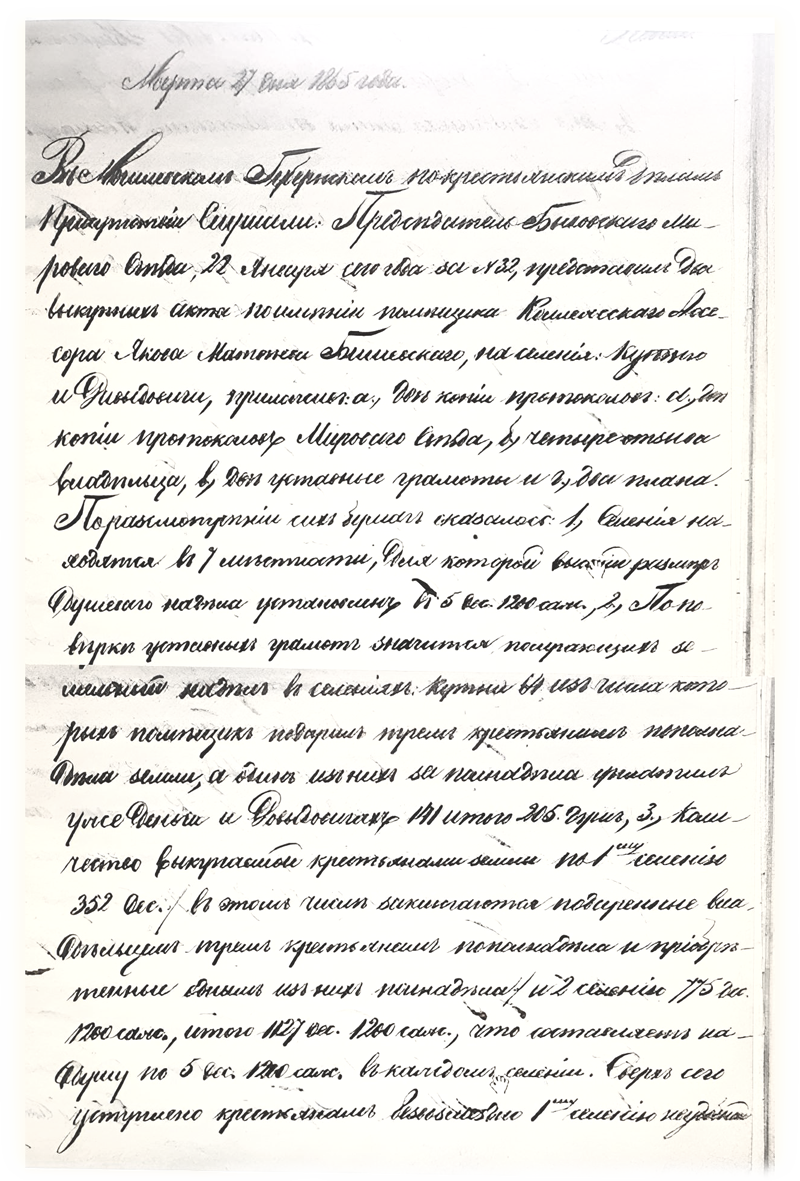 Марта 27 дня 1865 года.
Въ Могилевскомъ Губернскомъ по крестьянскимъ дѣламъ
Присутствіи Слушали: Предсѣдатель Быховскаго Ми-
роваго Съѣзда, 22 Января сего года за №32, представилъ два
выкупныхъ акта по имѣнію помѣщика Коллежскаго Ассе-
сора Якова Матвѣева Бишевскаго, на селенія: Кутню
и Довидовичи, приложивъ: а, двѣ копіи протоколовъ: а, двѣ
копіи протоколовъ Мироваго Съѣзда, б, четыре отзыва
владѣльца, в, двѣ уставные грамоты и г, два плана.
По разсмотрѣніи сихъ бумагъ оказалось: 1, Селенія на-
ходятся въ 7 мѣстности, для которой высшій размѣръ
душеваго надѣла установленъ въ 5 дес. 1200 саж., 2, По по-
вѣркѣ уставныхъ грамотъ значится получающихъ зе-
мельный надѣлъ въ селеніяхъ: Кутни 64 изъ числа кото-
рыхъ помѣщикъ подарилъ тремъ крестьянамъ по полна-
дѣла земли, а одинъ изъ нихъ за полнадѣла уплатилъ
уже деньги и Довидовичахъ 141 итого 205 душъ, 3, Коли-
чество выкупаемой крестьянами земли по 1му селенію
352 дес. / въ этомъ числѣ заключаются подаренные вла-
дѣльцемъ тремъ крестьянамъ по полнадѣла и пріобрѣ-
тенные однимъ изъ нихъ полнадѣла / и 2 селенію 775 дес.
1200 саж., итого 1127 дес. 1200 саж., что составляетъ на
душу по 5 дес. 1200 саж. въ каждомъ селеніи. Сверхъ сего
уступлено крестьянамъ безвозмездно 1му селенію неудобной